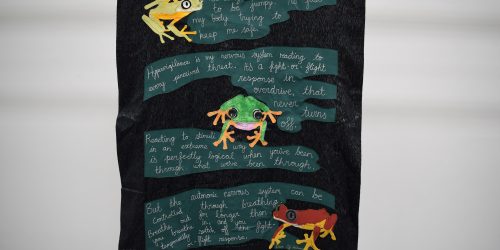 to be jumpy. It's just
my body trying to
keep me safe.
Hypervigilance is my nervous system reacting to
every perceived threat. It's a fight-or-flight
response in
overdrive, that
never turns
off.
Reacting to stimuli
in an extreme way
is perfectly logical when you've been
through what we've been through.
But the autonomic nervous system can be
controlled through breathing.
Breathe out for longer than
you breathe in, and you
out of the fight-
or flight response.